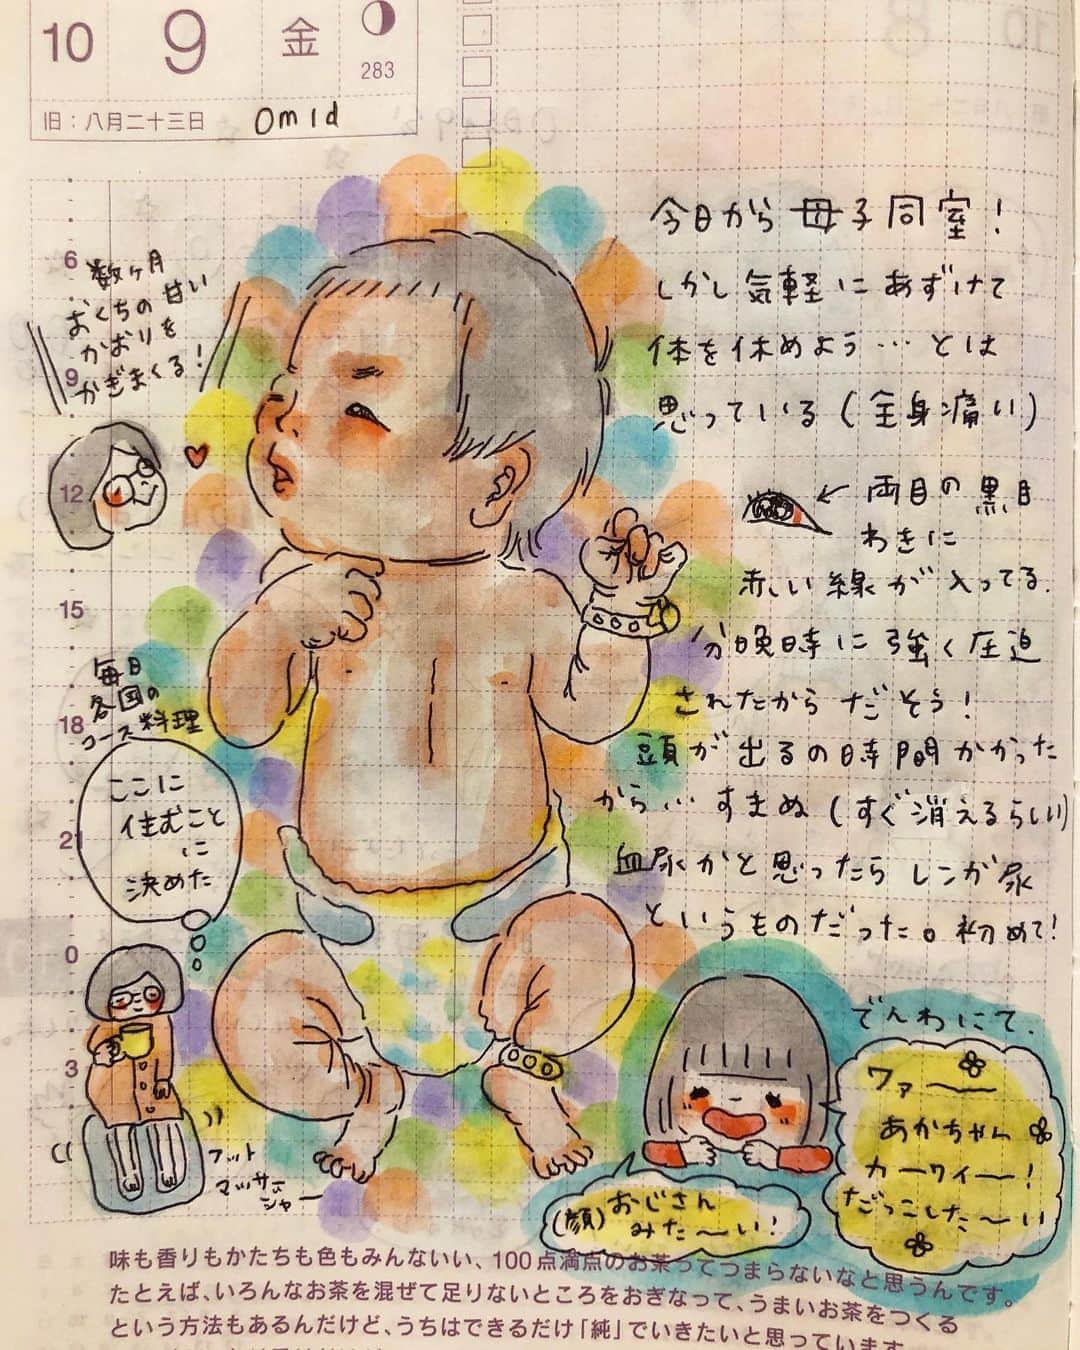 10 9 金
283
旧：八月二十三日 0m1d
今日から母子同室！
しかし気軽にあずけて
体を休めよう…とは
思っている（全身痛い）
両目の黒目
わきに
赤い線が入ってる.
分娩時に強く圧迫
されたからだそう！
頭が出るの時間かかった
から…すまぬ（すぐ消えるらしい）
血尿かと思ったらレンガ尿
というものだった。初めて！
数ヶ月
おくちの甘い
かおりを
かぎまくる！
6
9
12
15
18
21
0
3
毎日
各国の
コース料理
ここに
住むこと
に
決めた
フット
マッサー
ジャー
でんわにて.
ワァー
あかちゃん
カーワイー！
だっこしたーい
(顔)おじさん
みたーい！
味も香りもかたちも色もみんないい、100点満点のお茶ってつまらないなと思うんです。
たとえば、いろんなお茶を混ぜて足りないところをおぎなって、うまいお茶をつくる
という方法もあるんだけど、うちはできるだけ「純」でいきたいと思っています